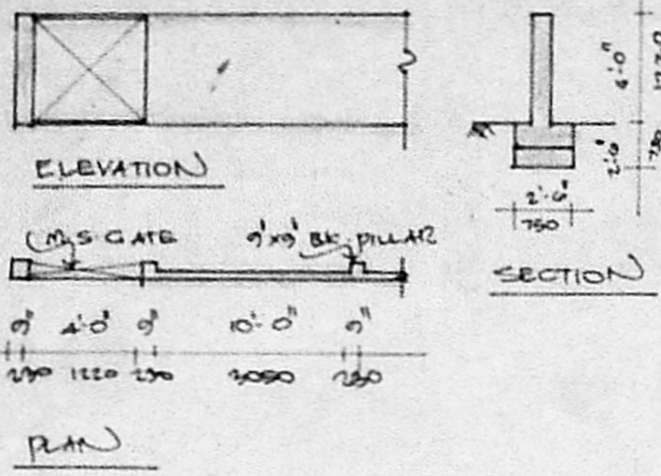 ELEVATION
M.S. GATE
9"x9" BK. PILLAR
9" 4'-0" 9" 10'-0" 9"
230 1220 230 3050 230
PLAN
4'-0"
2'-6"
2'-6"
750
SECTION